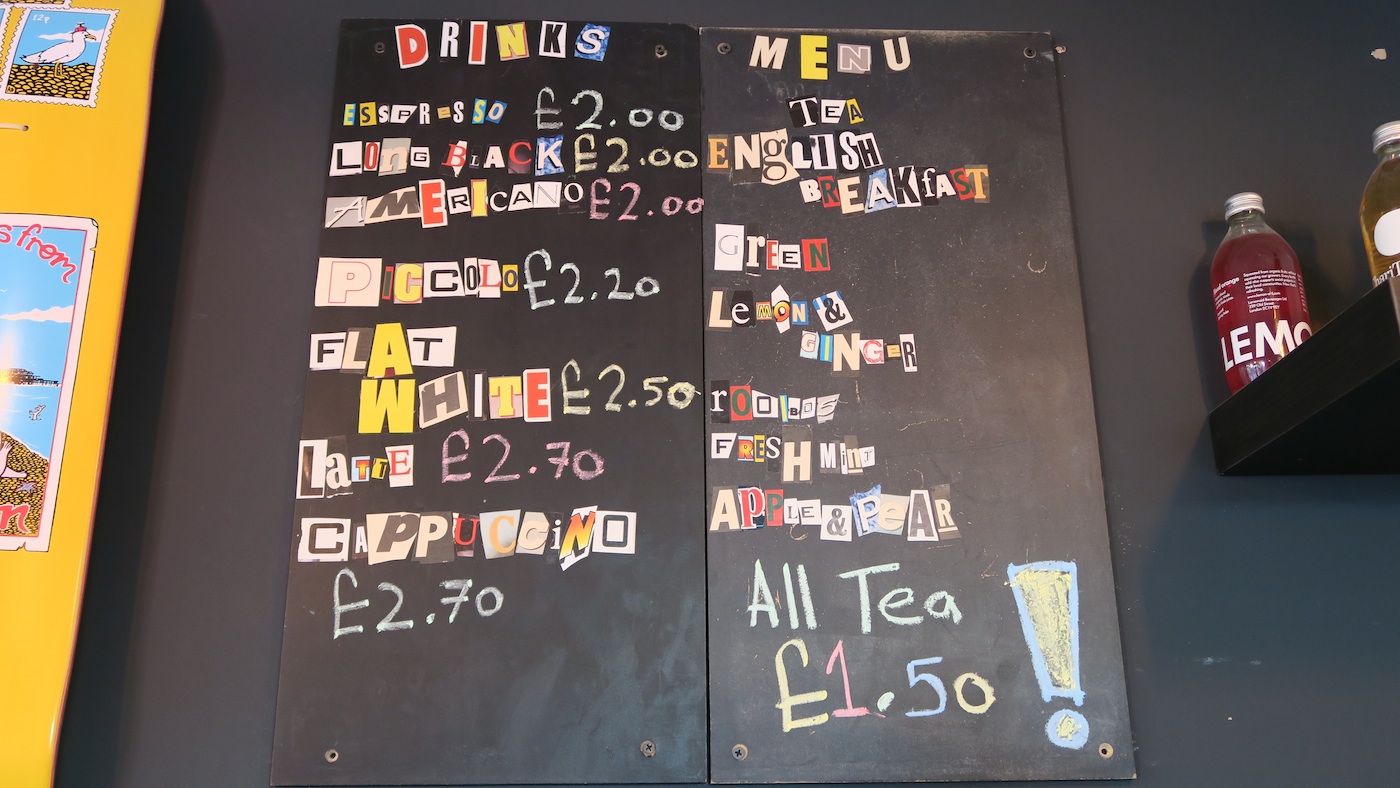 DRINKS
ESSPRESSO £2.00
LONG BLACK £2.00
AMERICANO £2.00
PICCOLO £2.20
FLAT
WHITE £2.50
LaTTE £2.70
CAPPUCCiNO
£2.70
MENU
TEA
ENgLISH
BREAKfAST
GrEEN
LemON &
GINGER
rOOIBOS
FRESH MinT
APPLE & PEAR
All Tea
£1.50 !
12p
s from
LEMO